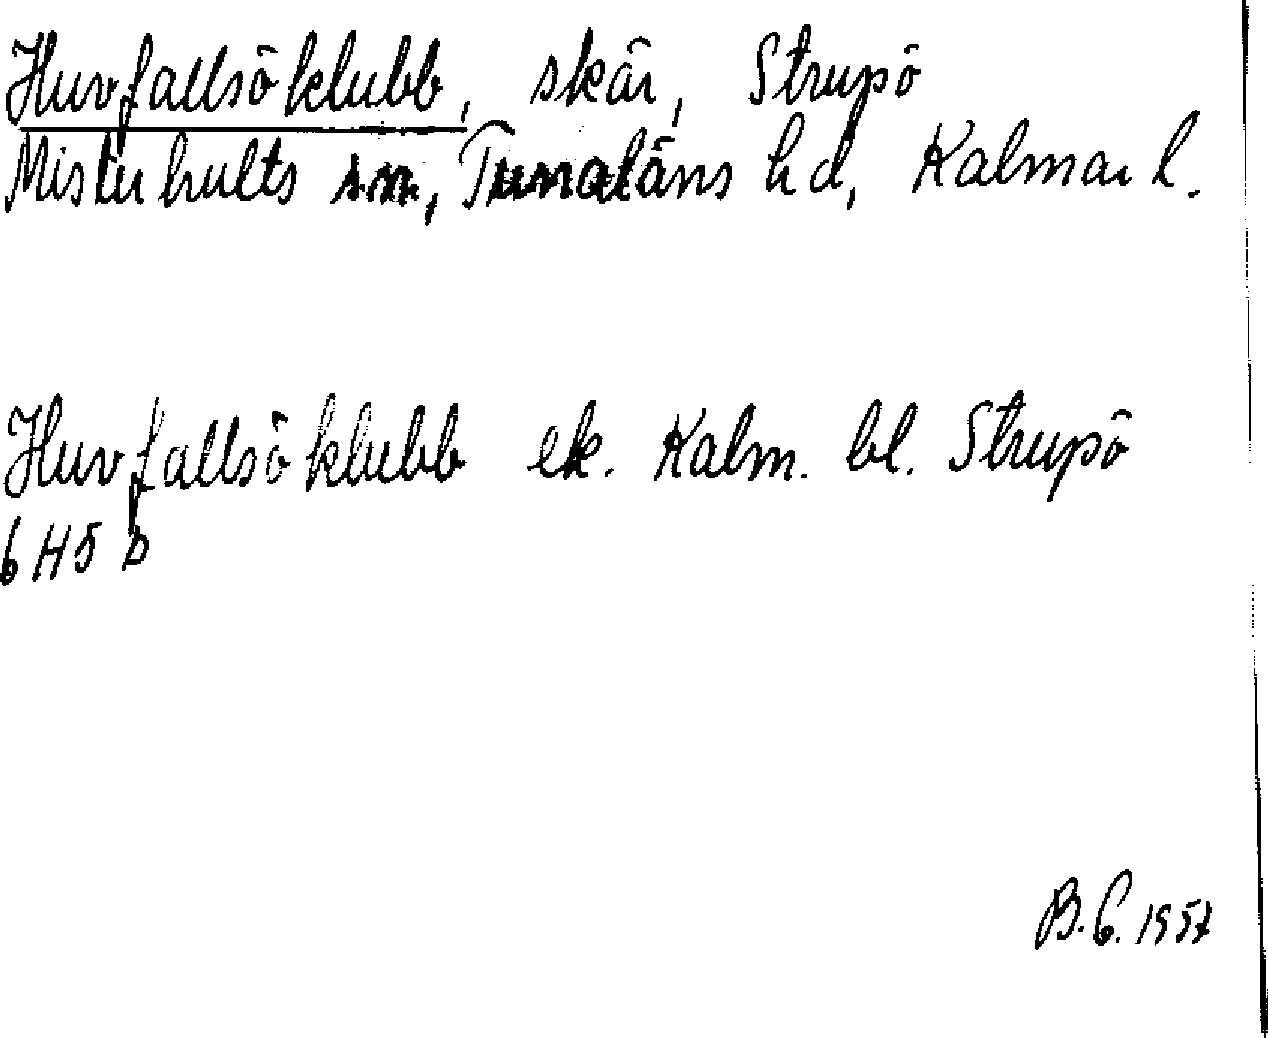 Huvfallsöklubb, skär, Strupö
Misterhults sn, Tunaläns hd, Kalmar l.
Huvfallsöklubb ek. Kalm. bl. Strupö
6 H 5 b
B.G. 1957